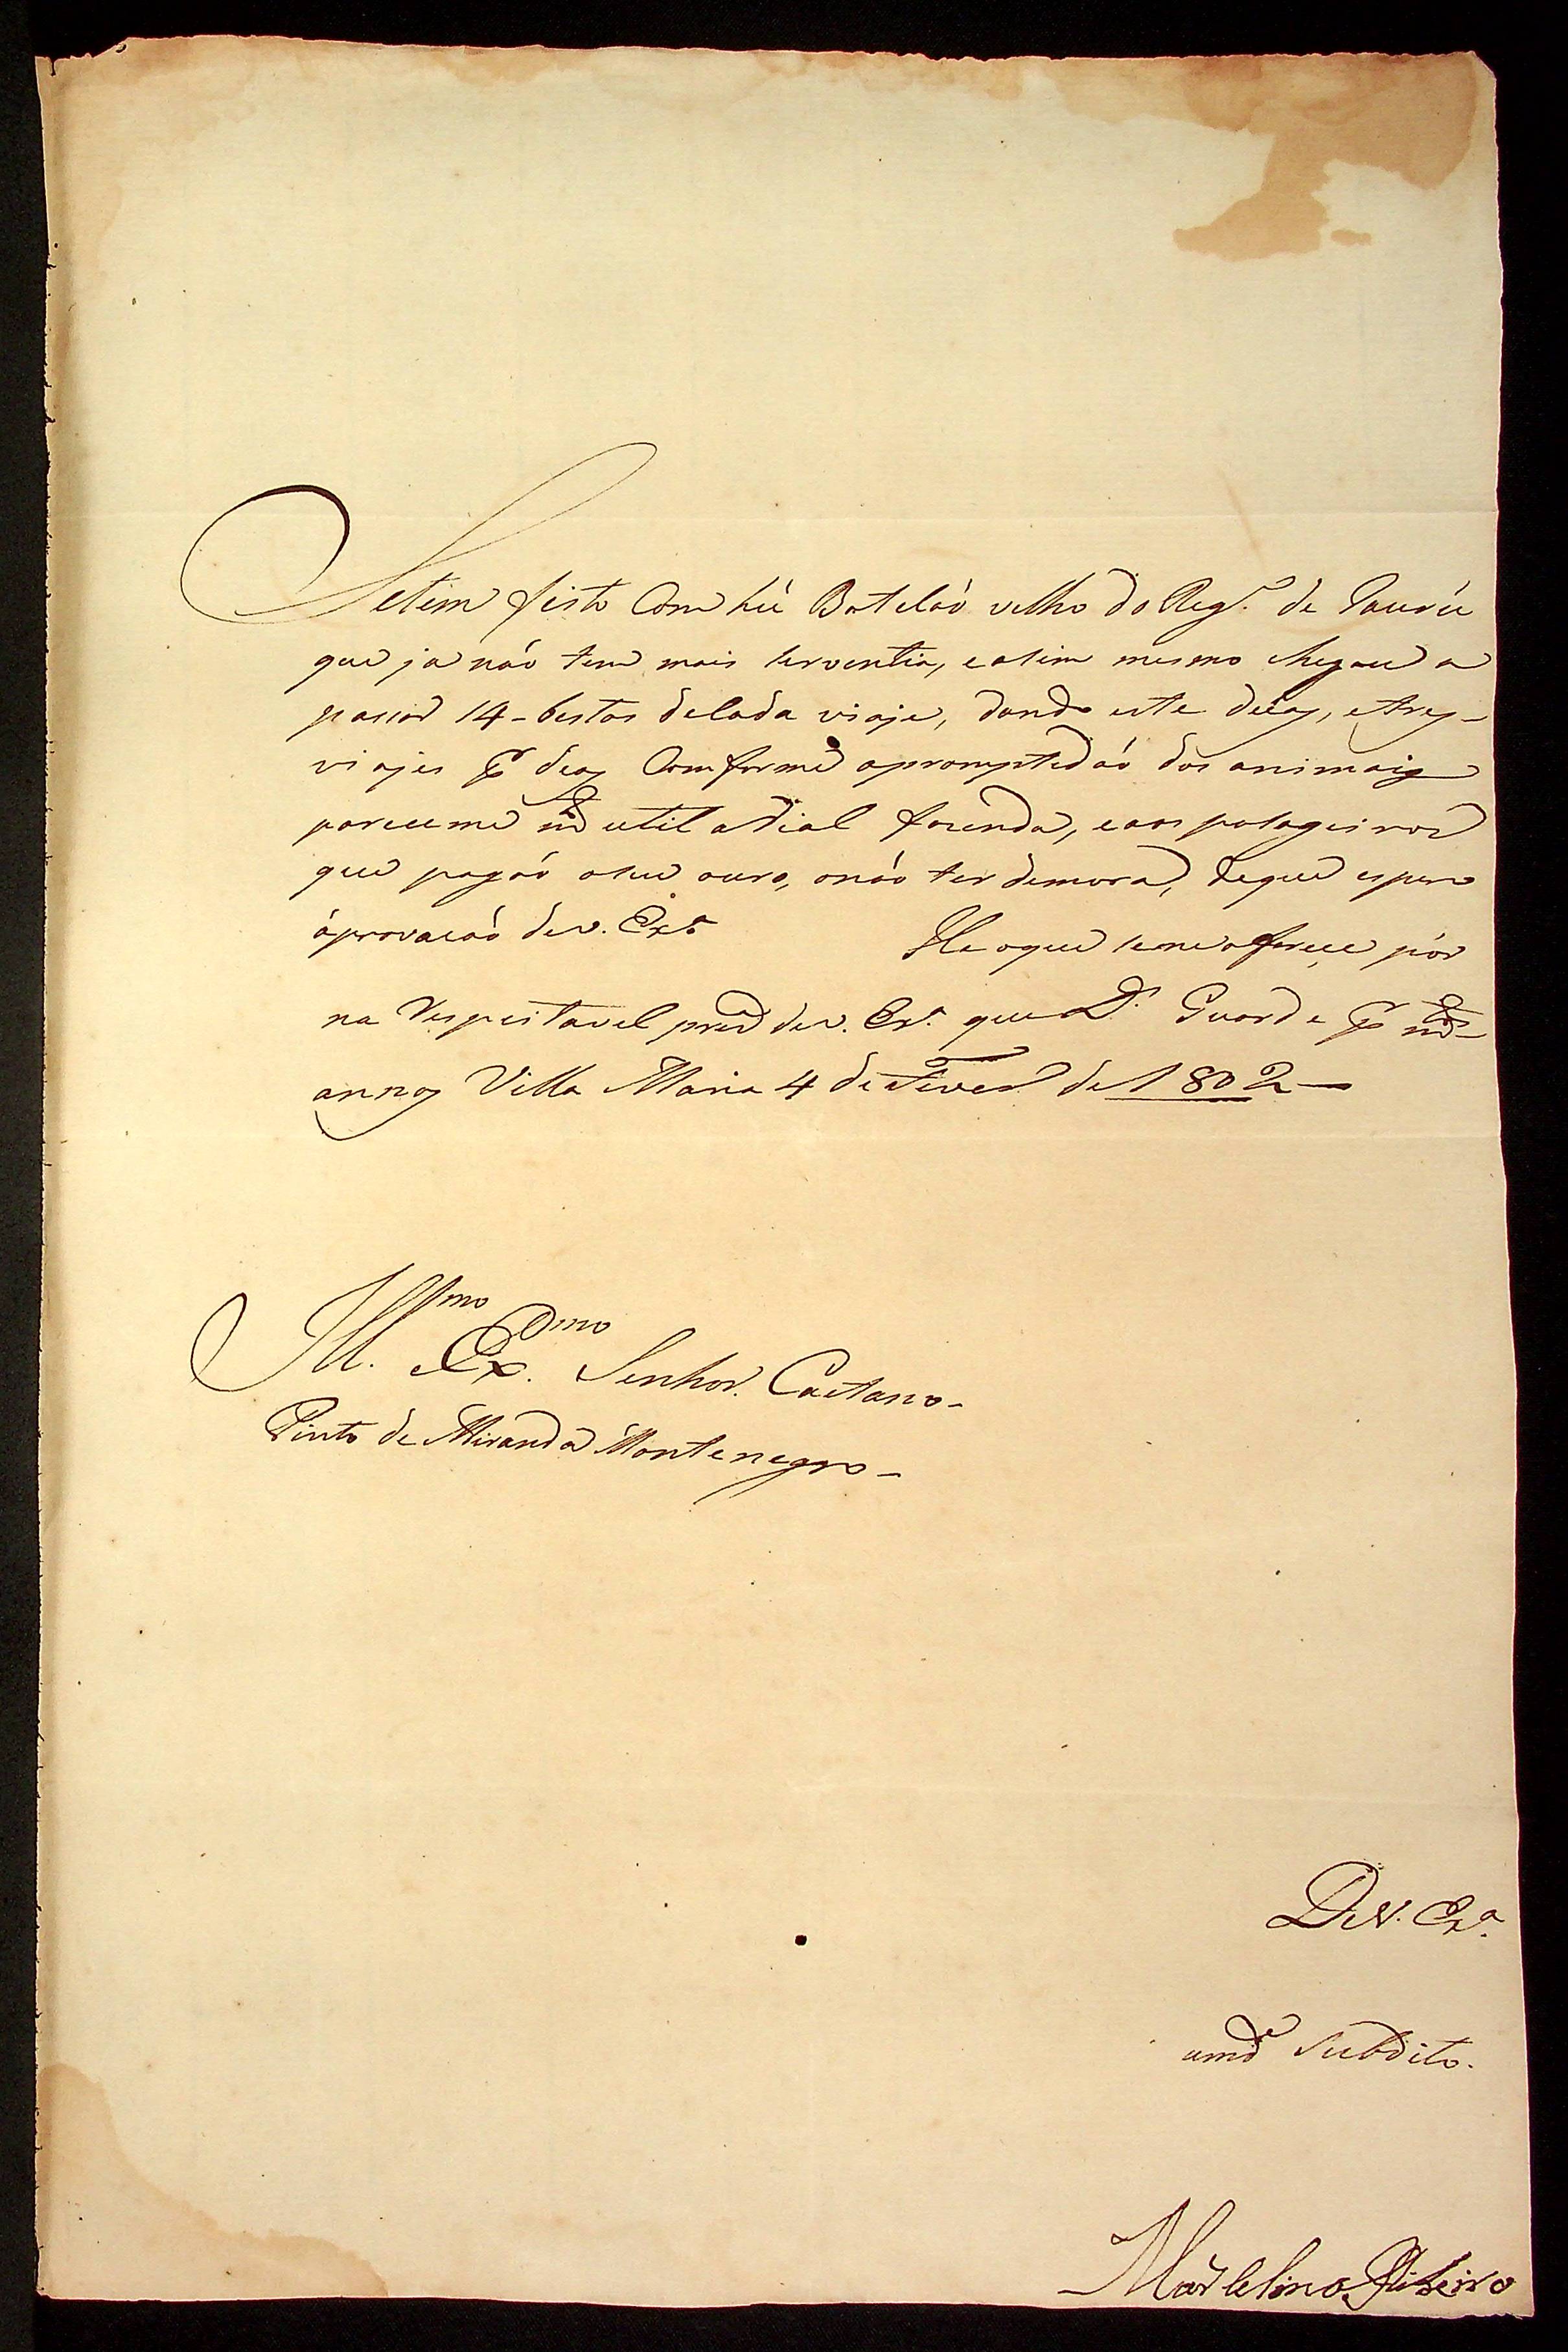 Setem feito Com hũ Batelaó velho do Reg.º de Jaurú
que ja náo tem mais serventia, easim mesmo chegou a
passar 14 - bestas decada viaje, dando este duas, etres -
viajes p.r dia, Comforme apromptidáo dos animais
pareceme m.to util aRial fazenda, eaos pasageiros
que pagaó oseu ouro, onáo ter demora, deque espero
áprovacaó dev. Ex.ª He oque seme oferece pór
na Respeitavel prez.ça dev. Ex.ª que D.s Guarde p.r m.tos
annos Villa Maria 4 de Fever.º de 1802 —
Ill.mo Ex.mo Senhor Caetano -
Pinto de Miranda Montenegro -
DeV. Ex.ª
umd.e Subdito.
Marcelino Ribeiro